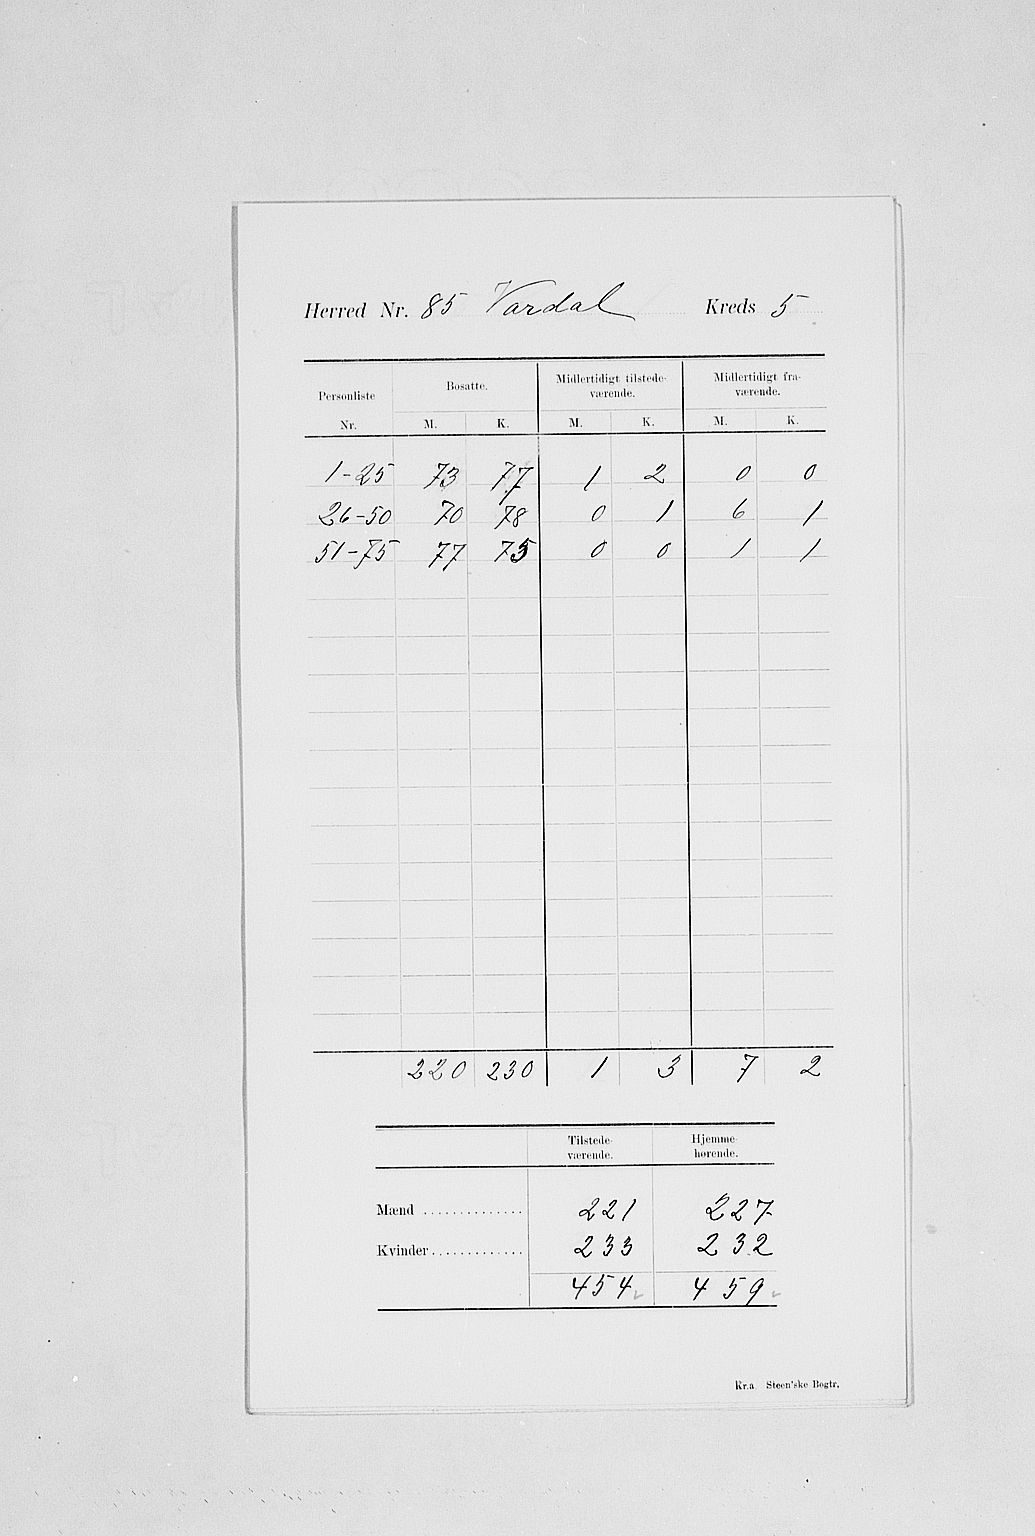 Herred Nr. 85 Vardal Kreds 5
Personliste Nr. Bosatte. Midlertidigt tilstede- værende. Midlertidigt fra- værende.
M. K. M. K. M. K.
1-25 73 77 1 2 0 0
26-50 70 78 0 1 6 1
51-75 77 75 0 0 1 1
220 230 1 3 7 2
Tilstede- værende. Hjemme- hørende.
Mænd .............. 221 227
Kvinder ............. 233 232
454 459
Kr.a Steen'ske Bogtr.